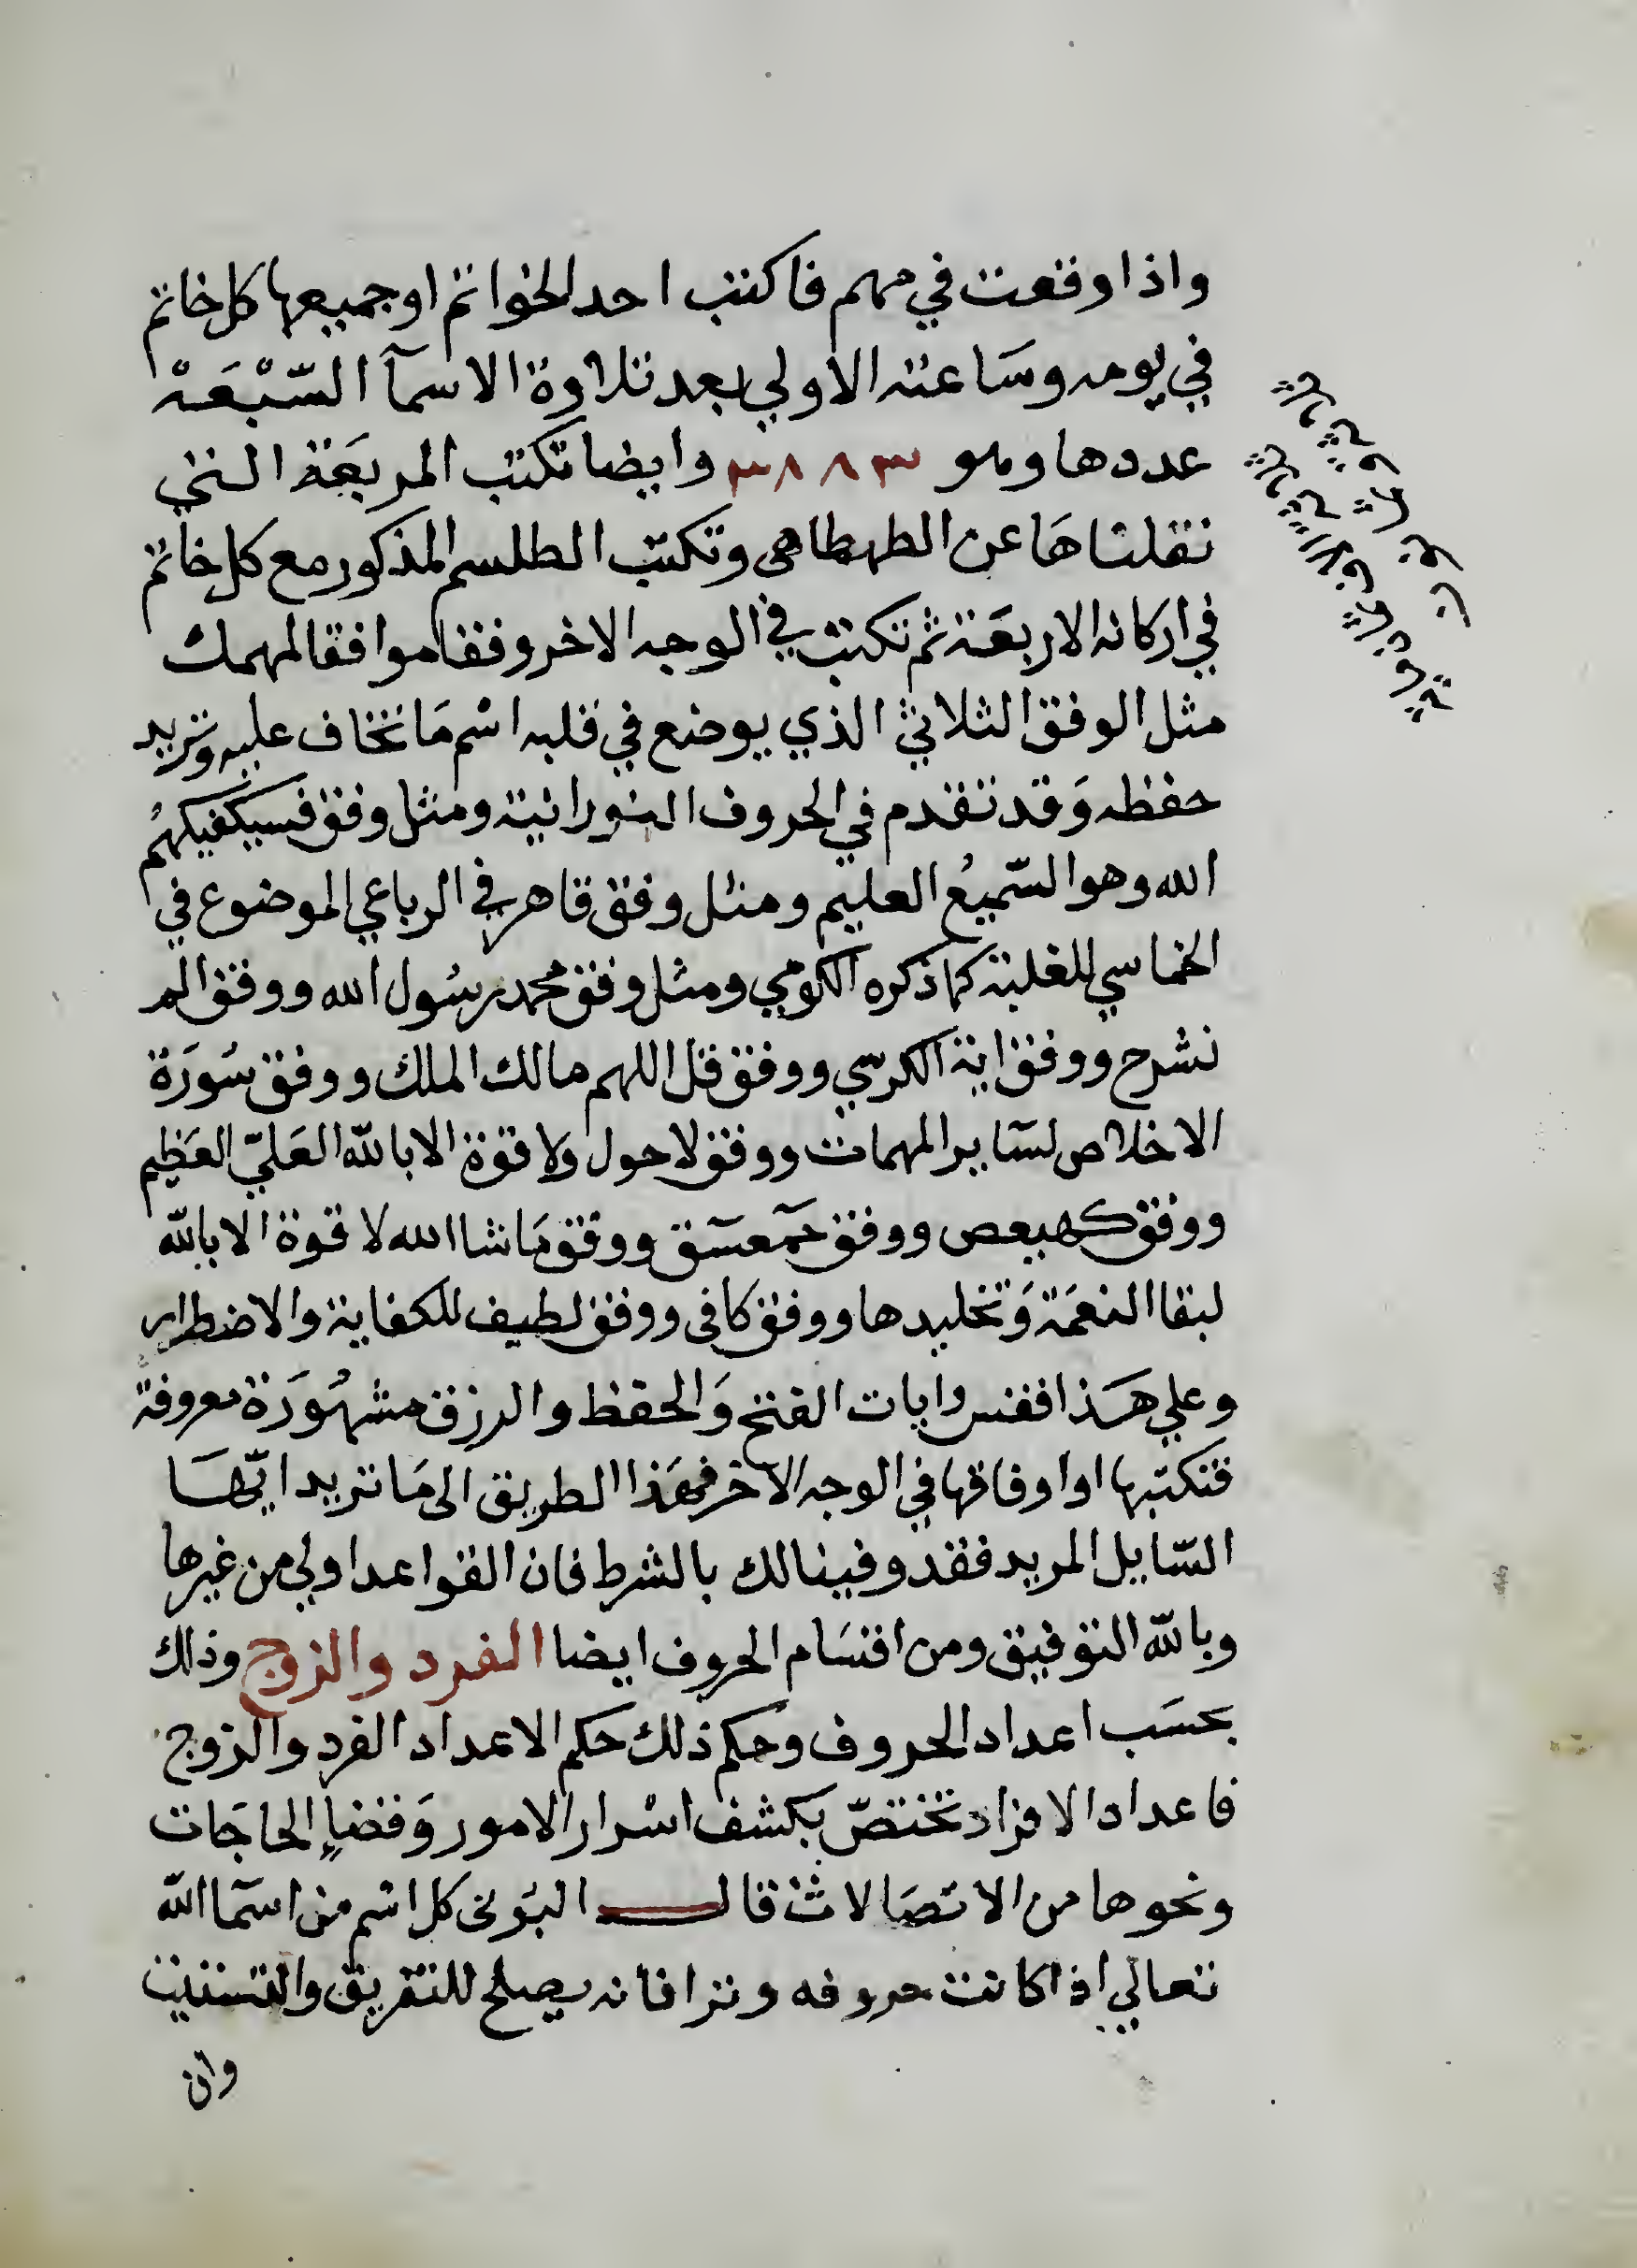 واذا وقعت في مهم فاكتب احد الخواتم او جميعها كل خاتم
في يومه وسَاعته الاولي بعد تلاوة الاسمآ السّبْعَة
عددها وهو ٣٨٨٣ وايضا تكتب المربعَة التي
نقلناهَا عن الطهطاهى وتكتب الطلسم المذكور مع كل خاتم
في اركانه الاربعَة ثم تكتب في الوجه الاخر وفقا موافقا لمهمك
مثل الوفق الثلاثي الذي يوضع في قلبه اسْم مَا تخاف عليه وتريد
حفظه وَقد تقدم في الحروف النورانية ومثل وفق فسيكفيكهمُ
الله وهو السّميعُ العليم ومثل وفق قاهر في الرباعي الموضوع في
الخماسي للغلبة كما ذكره الكومي ومثل وفق محمد رسُول الله ووفق الم
نشرح ووفق اية الكرسي ووفق قل اللهم مالك الملك ووفق سُورَة
الاخلاص لسَاير المهمات ووفق لا حول ولا قوة الا بالله العَليّ العَظيم
ووفق كهيعص ووفق حمٓعسٓق ووفق مَا شا الله لا قوة الا بالله
لبقا النعمَة وَتخليدها ووفق كافى ووفق لطيف للكفاية والاضطرار
وعلي هَذا فقس وايات الفتح وَالحفظ والرزق مشهُورَة معروفة
فتكتبها او اوفاقها في الوجه الاخر فهَذا الطريق الى مَا تريد ايّهَا
السّايل المريد فقد وفينا لك بالشرط فان القواعد اولي من غيرها
وبالله التوفيق ومن اقسَام الحروف ايضا الفرد والزوج وذلك
بحسَب اعداد الحروف وحكم ذلك حكم الاعداد الفرد والزوج
فاعداد الافراد تختصّ بكشف اسْرار الامور وَقضاء الحاجَات
ونحوها من الاتصَالات قال البَونى كل اسْم من اسمآ الله
تعالي اذا كانت حروفه وترا فانه يصلح للتفريق والتشتيت
وان